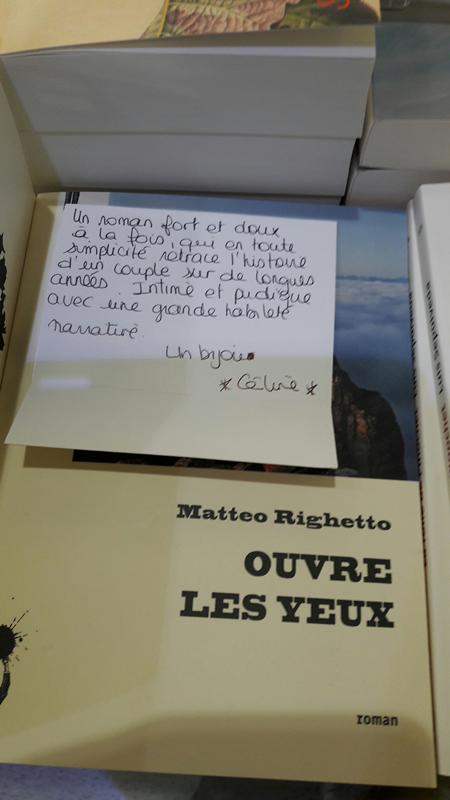 Un roman fort et doux
à la fois, qui en toute
simplicité retrace l'histoire
d'un couple sur de longues
années. Intime et pudique
avec une grande habileté
narrative.
Un bijou
* Céline *
Matteo Righetto
OUVRE
LES YEUX
roman